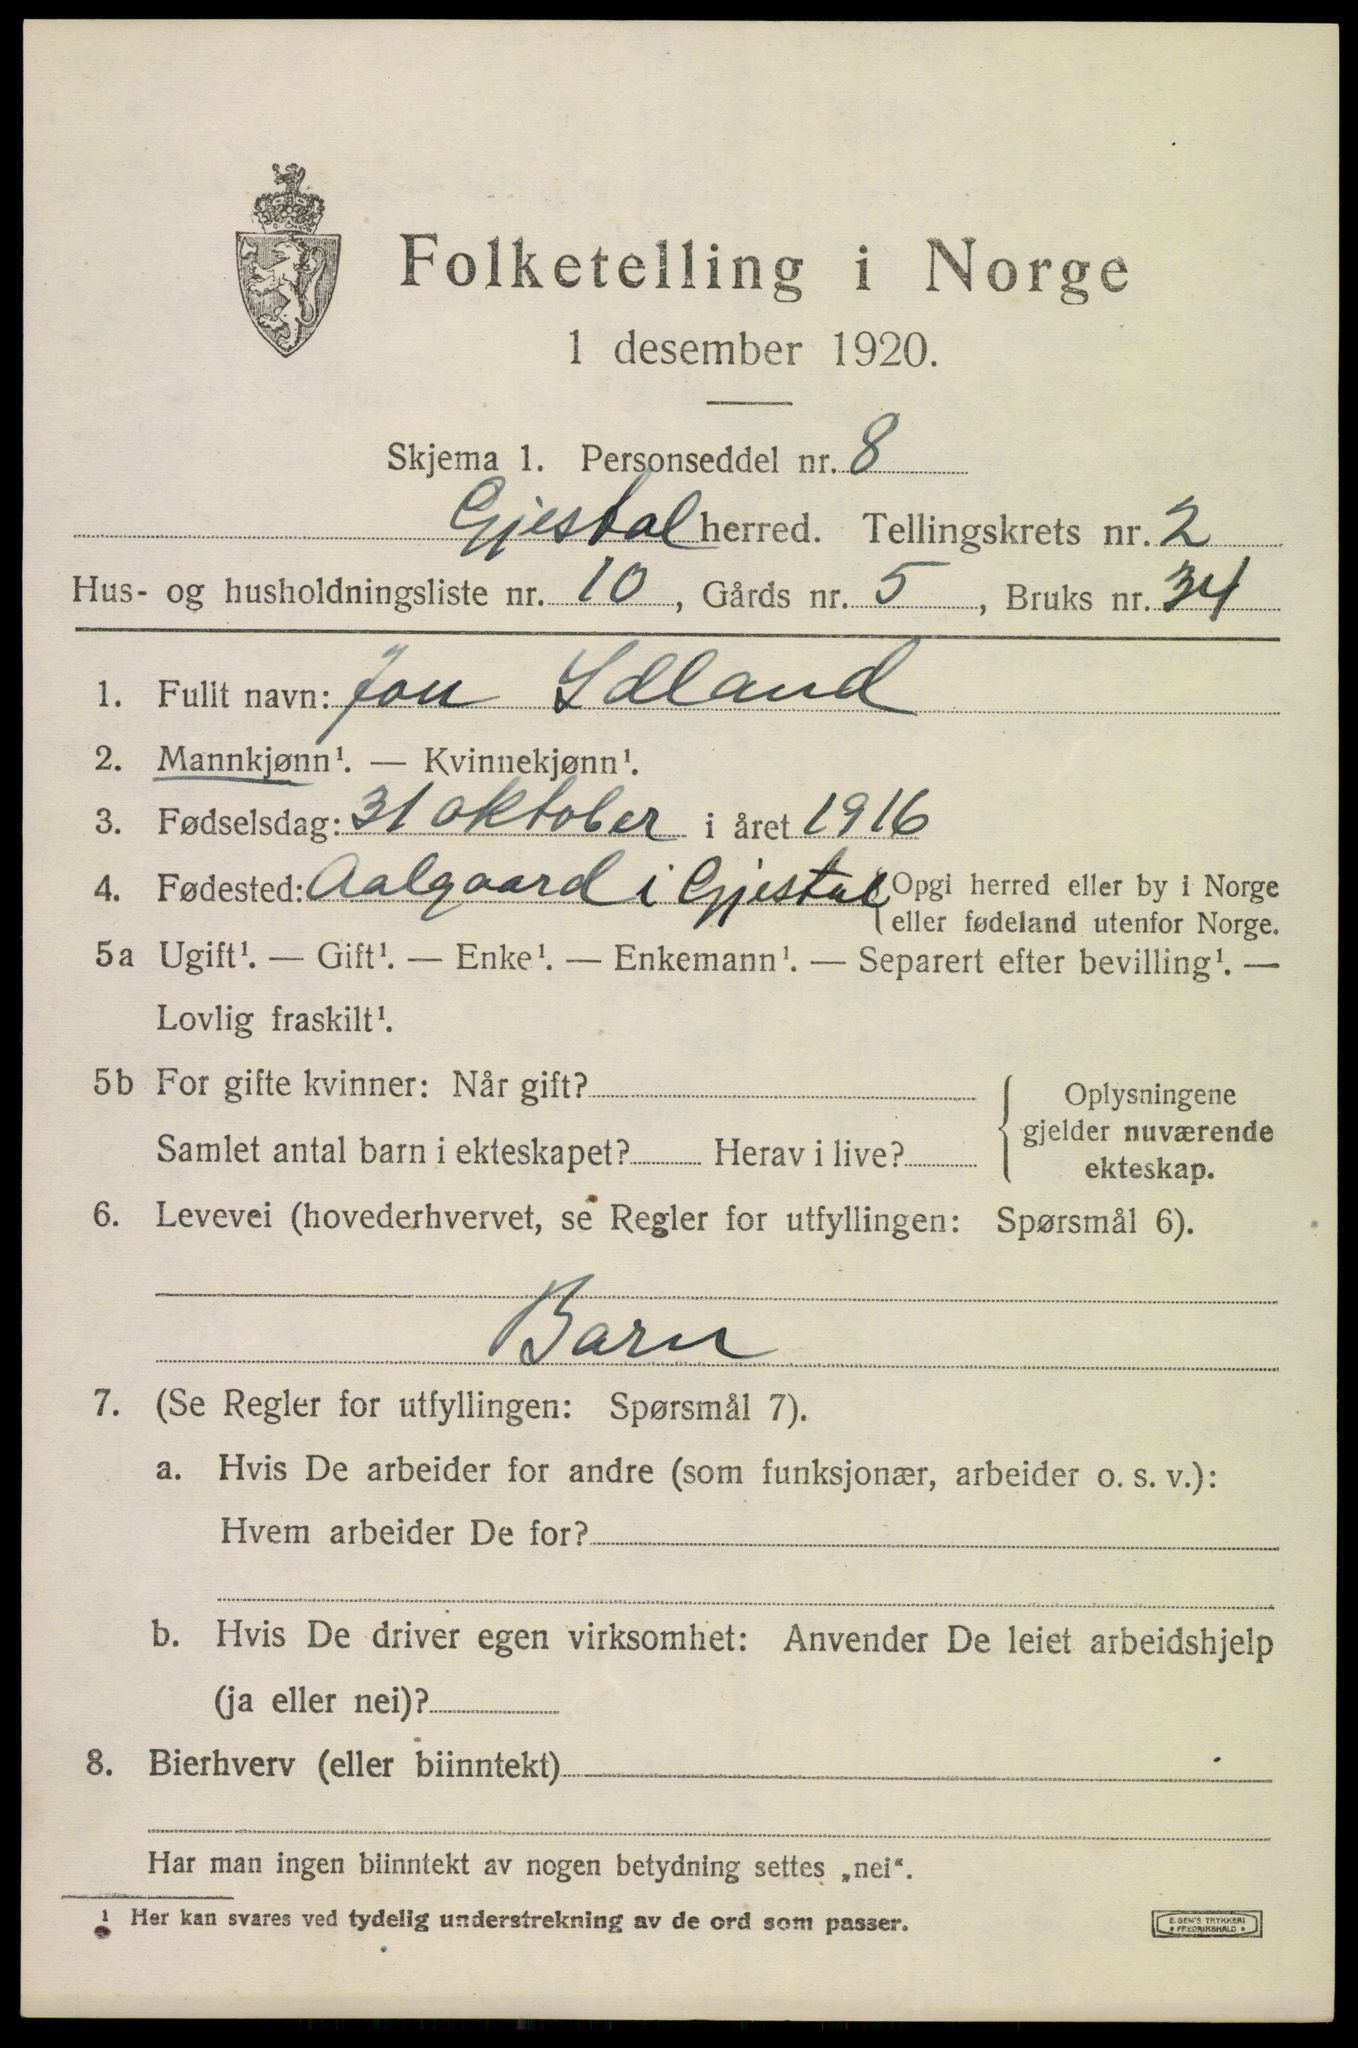 Folketelling i Norge
1 desember 1920.
Skjema 1. Personseddel nr. 8
Gjestal herred. Tellingskrets nr. 2
Hus- og husholdningsliste nr. 10, Gårds nr. 5, Bruks nr. 34
1. Fullt navn: Jon Idland
2. Mannkjønn¹. — Kvinnekjønn¹.
3. Fødselsdag: 31 oktober i året 1916
4. Fødested: Aalgaard i Gjestal Opgi herred eller by i Norge
eller fødeland utenfor Norge.
5a Ugift¹. — Gift¹. — Enke¹. — Enkemann¹. — Separert efter bevilling¹. —
Lovlig fraskilt¹.
5b For gifte kvinner: Når gift?
Samlet antal barn i ekteskapet? Herav i live?
Oplysningene
gjelder nuværende
ekteskap.
6. Levevei (hovederhvervet, se Regler for utfyllingen: Spørsmål 6).
Barn
7. (Se Regler for utfyllingen: Spørsmål 7).
a. Hvis De arbeider for andre (som funksjonær, arbeider o. s. v.):
Hvem arbeider De for?
b. Hvis De driver egen virksomhet: Anvender De leiet arbeidshjelp
(ja eller nei)?
8. Bierhverv (eller biinntekt)
Har man ingen biinntekt av nogen betydning settes „nei".
¹ Her kan svares ved tydelig understrekning av de ord som passer.
E. SEM'S TRYKKERI
* FREDRIKSHALD *